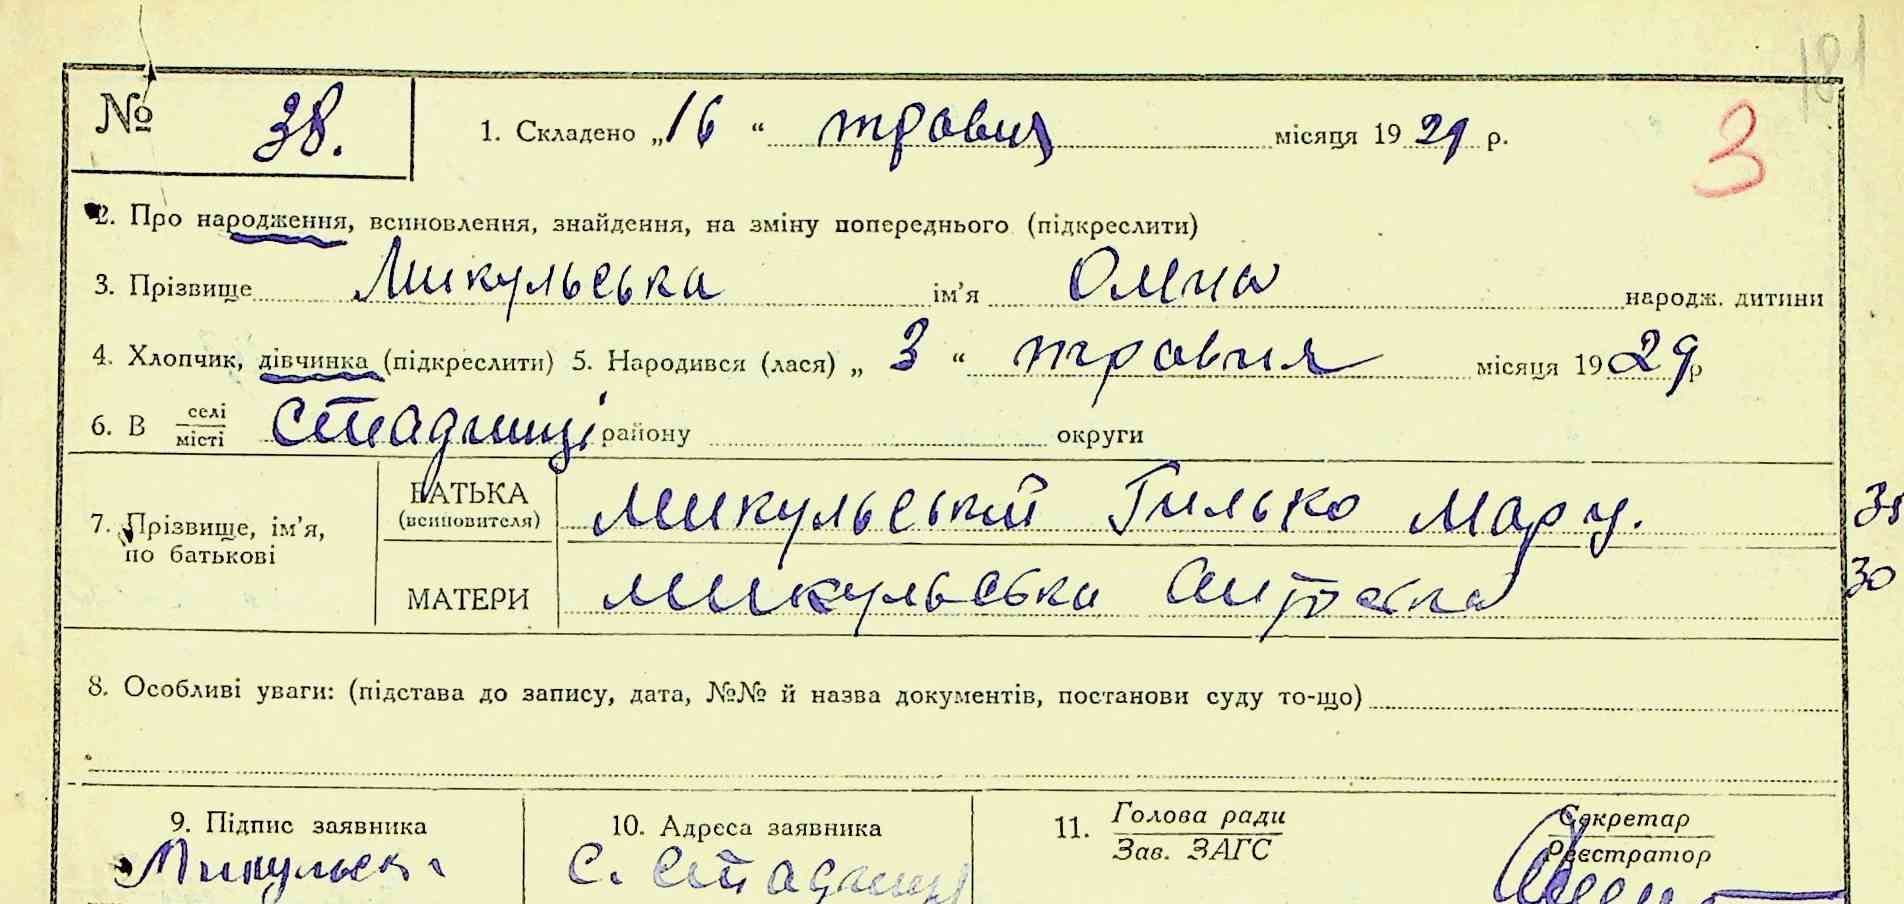 181
№ 38. 1. Складено „16“ травня місяця 1929 р. 3
2. Про народження, всиновлення, знайдення, на зміну попереднього (підкреслити)
3. Прізвище Микульська ім’я народж. дитини
4. Хлопчик, дівчинка (підкреслити) 5. Народився (лася) „3“ травня місяця 1929 р
6. В селі/місті Стадниці району округи
7. Прізвище, ім’я, по батькові
БАТЬКА (всиновителя) Микульський Гилько Марч.
МАТЕРИ Микульська 30
8. Особливі уваги: (підстава до запису, дата, №№ й назва документів, постанови суду то-що)
9. Підпис заявника 10. Адреса заявника 11. Голова ради Секретар
Зав. ЗАГС Реєстратор
Микульськ с. Стадниц